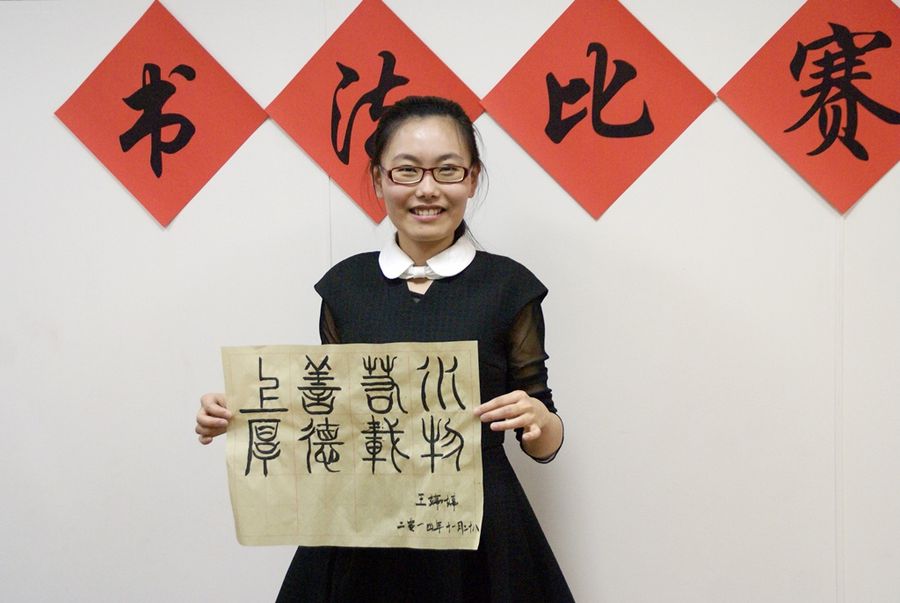 书法比赛
上善若水
厚德載物
王
二零一四年十一月二十八